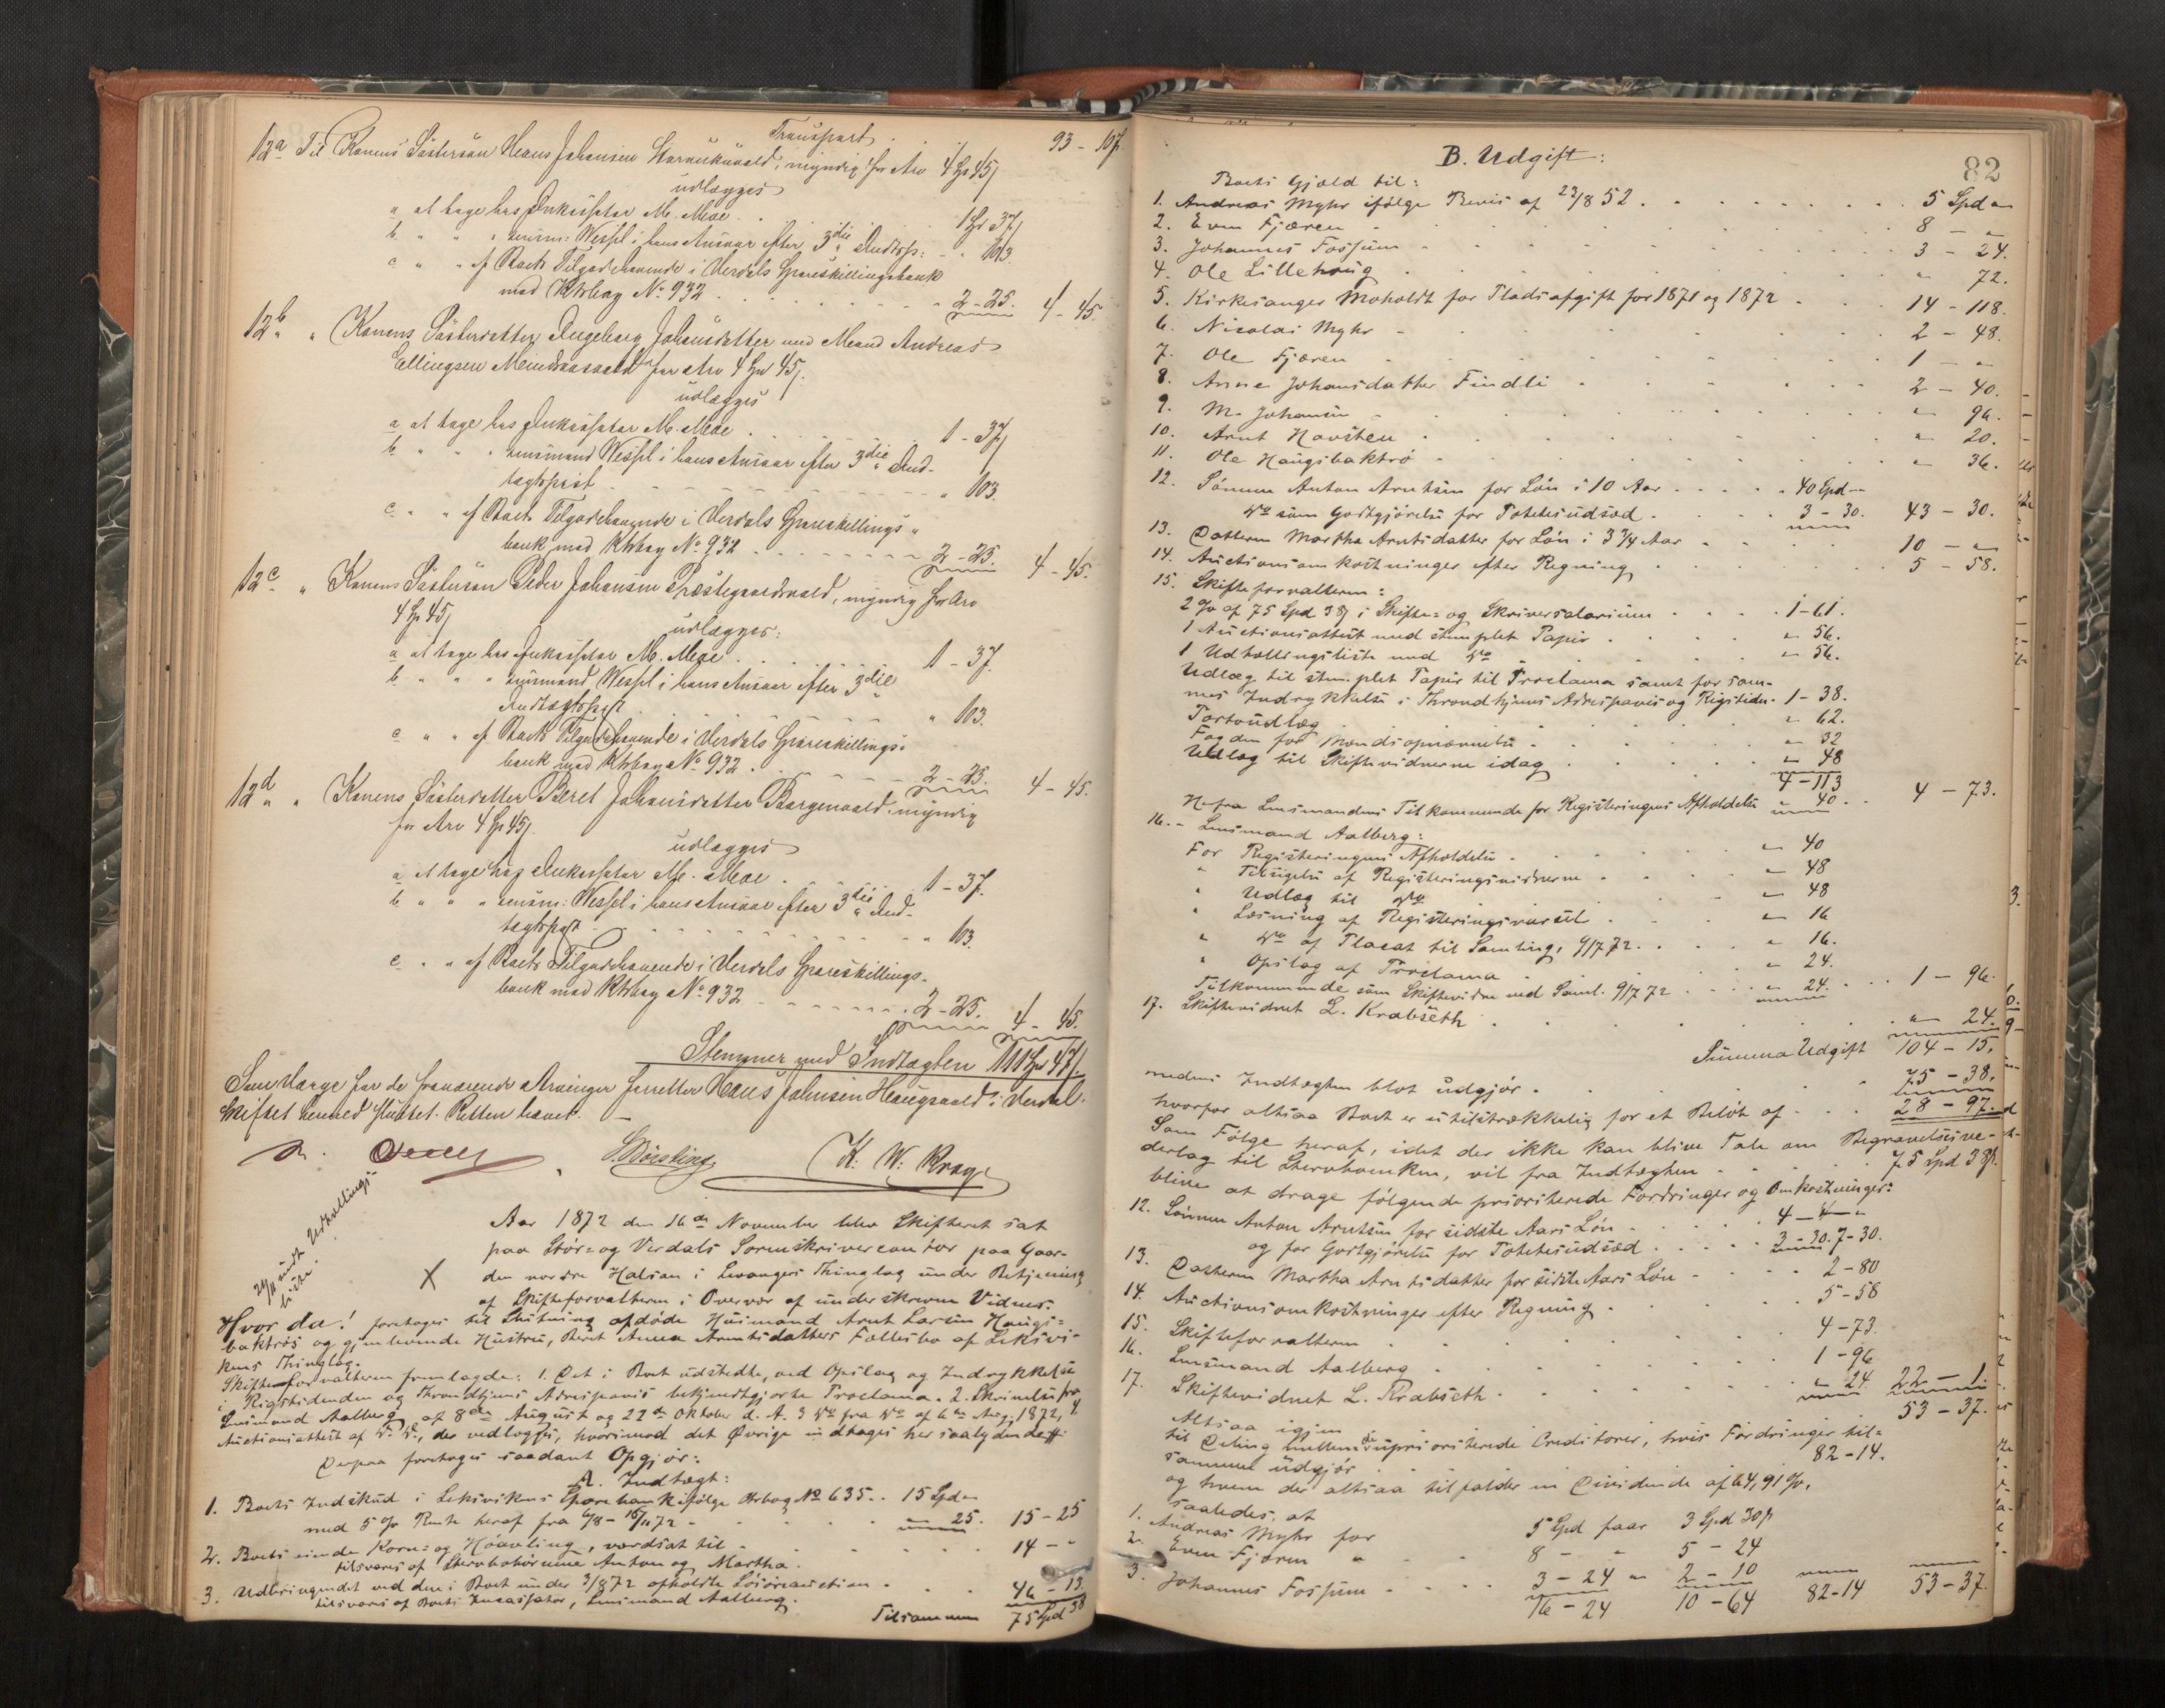 Transport . . 93 - 107.
12a Til Konens Søstersøn Hans Johansen myndig for Arv 4 Spd 45 s
udlægges
a at tage hos Inkassator M. Moe . . 1 Spd 37 s
b " " " Lensm: Wessel i hans Ansvar efter 3die Indtgtsp: - " 103.
c " " af Boets Tilgodehavende i Verdals Spareskillingsbank
med Ktrbog No 932 . . . . 2 - 25. 4 - 45.
12b " " Konens Søsterdatter, Ingeborg Johansdatter med Mand Andreas
Ellingsen for Arv 4 Spd 45 s.
udlægges
a at tage hos Inkassator M. Moe . . . 1 - 37 s
b " " " Lensmand Wessel i hans Ansvar efter 3die Ind-
tægtspost . . . " 103.
c " " af Boets Tilgodehavende i Verdals Spareskillings-
bank med Ktrbog No 932 . . . 2 - 25. 4 - 45.
12c " Konens Søstersøn Peder Johansen Præstegaardsvald, myndig for Arv
4 Spd 45 s
udlægges:
a at tage hos Inkassator M. Moe . . . 1 - 37.
b " " " Lensmand Wessel i hans Ansvar efter 3die
Indtægtspost . . . " 103.
c " " af Boets Tilgodehavende i Verdals Spareskillings-
bank med Ktrbog No 932 . . . 2 - 25. 4 - 45.
12d " " Konens Søsterdatter Beret Johansdatter Borgenvald, myndig
for Arv 4 Spd 45 s.
udlægges
a at tage hos Inkassator M. Moe . . . 1 - 37.
b " " " Lensm: Wessel i hans Ansvar efter 3die Ind-
tægtspost . . . " 103.
c " " af Boets Tilgodehavende i Verdals Spareskillings-
bank med Ktrbog No 932 . . . 2 - 25. 4 - 45.
Stemmer med Indtægten 111 Spd 47 s.
Som Værge for de fraværende Arvinger Hans Johnsen Haugsvald i Verdal.
Skiftet hermed sluttet. Retten hævet.
K. W. Krog
Aar 1872 den 16de November blev Skifteret sat
paa Stør- og Verdals Sorenskrivercontor paa Gaar-
den nordre Halsan i Levangers Thinglag under Betjening
af Skifteforvalteren i Overvær af underskrevne Vidner.
Hvor da! foretoges til Slutning afdøde Husmand Arnt Larsen Haugs-
baktrøs og gjenlevende Hustru, Beret Anna Arntsdatters Fællesbo af Leksvi-
kens Thinglag.
Skifteforvalteren fremlagde: 1. Det i Boet udstedte, ved Opslag og Indrykkelse
i Rigstidenden og Throndhjems Adresseavis bekjendtgjorte Proclama. 2. Skrivelse fra
Lensmand Aalberg af 8de August og 22de Oktober d. A. 3 do fra do af 6te Aug. 1872, 4.
Auctionsattest af do do, der vedlægges, hvorimod det Øvrige indtages her saalydende #:
Derpaa foretoges saadant Opgjør:
A. Indtægt:
1. Boets Indskud i Leksvikens Sparebank ifølge Ktrbog No 635 . . 15 Spd "
med 5 % Rente heraf fra 6/8 - 16/11 72 - . . " 25. 15 - 25
2. Boets eiende Korn- og Høavling, værdsat til - . . . 14 - "
tilsvares af Sterbobørnene Anton og Martha.
3. Udbringendet ved den i Boet under 3/8 72 afholdte Løsøreauction . . . 46 - 13.
tilsvares af Boets Incassator, Lensmand Aalberg.
Tilsammen 75 Spd 38
82
B. Udgift:
Boets Gjæld til:
1. Andreas Myhr ifølge Bevis af 23/8 52 . . . . 5 Spd "
2. Even Fjæren - . . . 8 - "
3. Johannes Fossum - . . . 3 - 24.
4. Ole Lillehaug . . . " 72.
5. Kirkesanger Moholdt for Pladsafgift for 1871 og 1872 . . . 14 - 118.
6. Nicolai Myhr - . . . 2 - 48.
7. Ole Fjæren . . . 1 - "
8. Anne Johansdatter Findli . . . 2 - 40.
9. M. Johansen - . . . " 96.
10. Arnt Hovsteen . . . " 20.
11. Ole Haugsbaktrø - . . . " 36.
12. Sønnen Anton Arntsen for Løn i 10 Aar . . . 40 Spd "
do som Godtgjørelse for Potetesudsæd . . . 3 - 30. 43 - 30.
13. Datteren Martha Arntsdatter for Løn i 3 3/4 Aar - . . . 10 - "
14. Auctionsomkostninger efter Regning . . . 5 - 58.
15. Skifteforvalteren:
2 % af 75 Spd 38 s i Skifte- og Skriversalarium . . . 1 - 61.
1 Auctionsattest med stemplet Papir . . . " 56.
1 Udkastelingsliste med do . . . " 56.
Udlæg til stemplet Papir til Proclama samt for sam-
mes Indrykkelse i Throndhjems Adresseavis og Rigstiden. 1 - 38.
Portoudlæg . . . " 62.
Fogden for Mændsopnævnelse . . . " 32
Udlæg til Skiftevidnerne idag . . . " 48
4 - 113
Herfra Lensmandens Tilkommende for Registreringens Afholdelse " 40. . 4 - 73.
16. - Lensmand Aalberg:
For Registreringens Afholdelse . . . " 40
" Tilsigelse af Registreringsvidnerne . . . " 48
" Udlæg til do - . . . " 48
" Læsning af Registreringsvarsel . . . " 16
" do af Placat til Samling 9/7 72 . . . " 16.
" Opslag af Proclama . . . " 24.
Tilkommende som Skiftevidne ved Saml. 9/7 72 . . . " 24. . . 1 - 96.
17. Skiftevidnet L. Krabseth . . . " 24.
Summa Udgift 104 - 15.
medens Indtægten blot udgjør . . . 75 - 38.
hvorfor altsaa Boet er utilstrækkelig for et Beløb af . . . 28 - 97.
Som Følge heraf, idet der ikke kan blive Tale om Begravelsesve-
derlag til Sterboenken, vil fra Indtægten . . . 75 Spd 38 s.
blive at drage følgende prioriterede Fordringer og Omkostninger:
12. Sønnen Anton Arntsen for sidste Aars Løn . . . 4 - "
og for Godtgjørelse for Potetesudsæd . . . 3 - 30. 7 - 30.
13. Datteren Martha Arntsdatter for sidste Aars Løn - . . . 2 - 80
14. Auctionsomkostninger efter Regning . . . 5 - 58
15. Skifteforvalteren . . . 4 - 73.
16. Lensmand Aalberg . . . 1 - 96
17. Skiftevidnet L. Krabseth . . . " 24. 22 - 1
Altsaa igjen . . . 53 - 37.
til Deling mellem de upriorite­rede Creditorer, hvis Fordringer til-
sammen udgjør . . . 82 - 14.
og hvem der altsaa tilfalder en Dividende af 64,91 %,
saaledes, at
1. Andreas Myhr for 5 Spd faar 3 Spd 30 s
2. Even Fjæren " 8 - " 5 - 24
3. Johannes Fossum . . . 3 - 24 " 2 - 10
16 - 24 10 - 64 82 - 14 53 - 37.